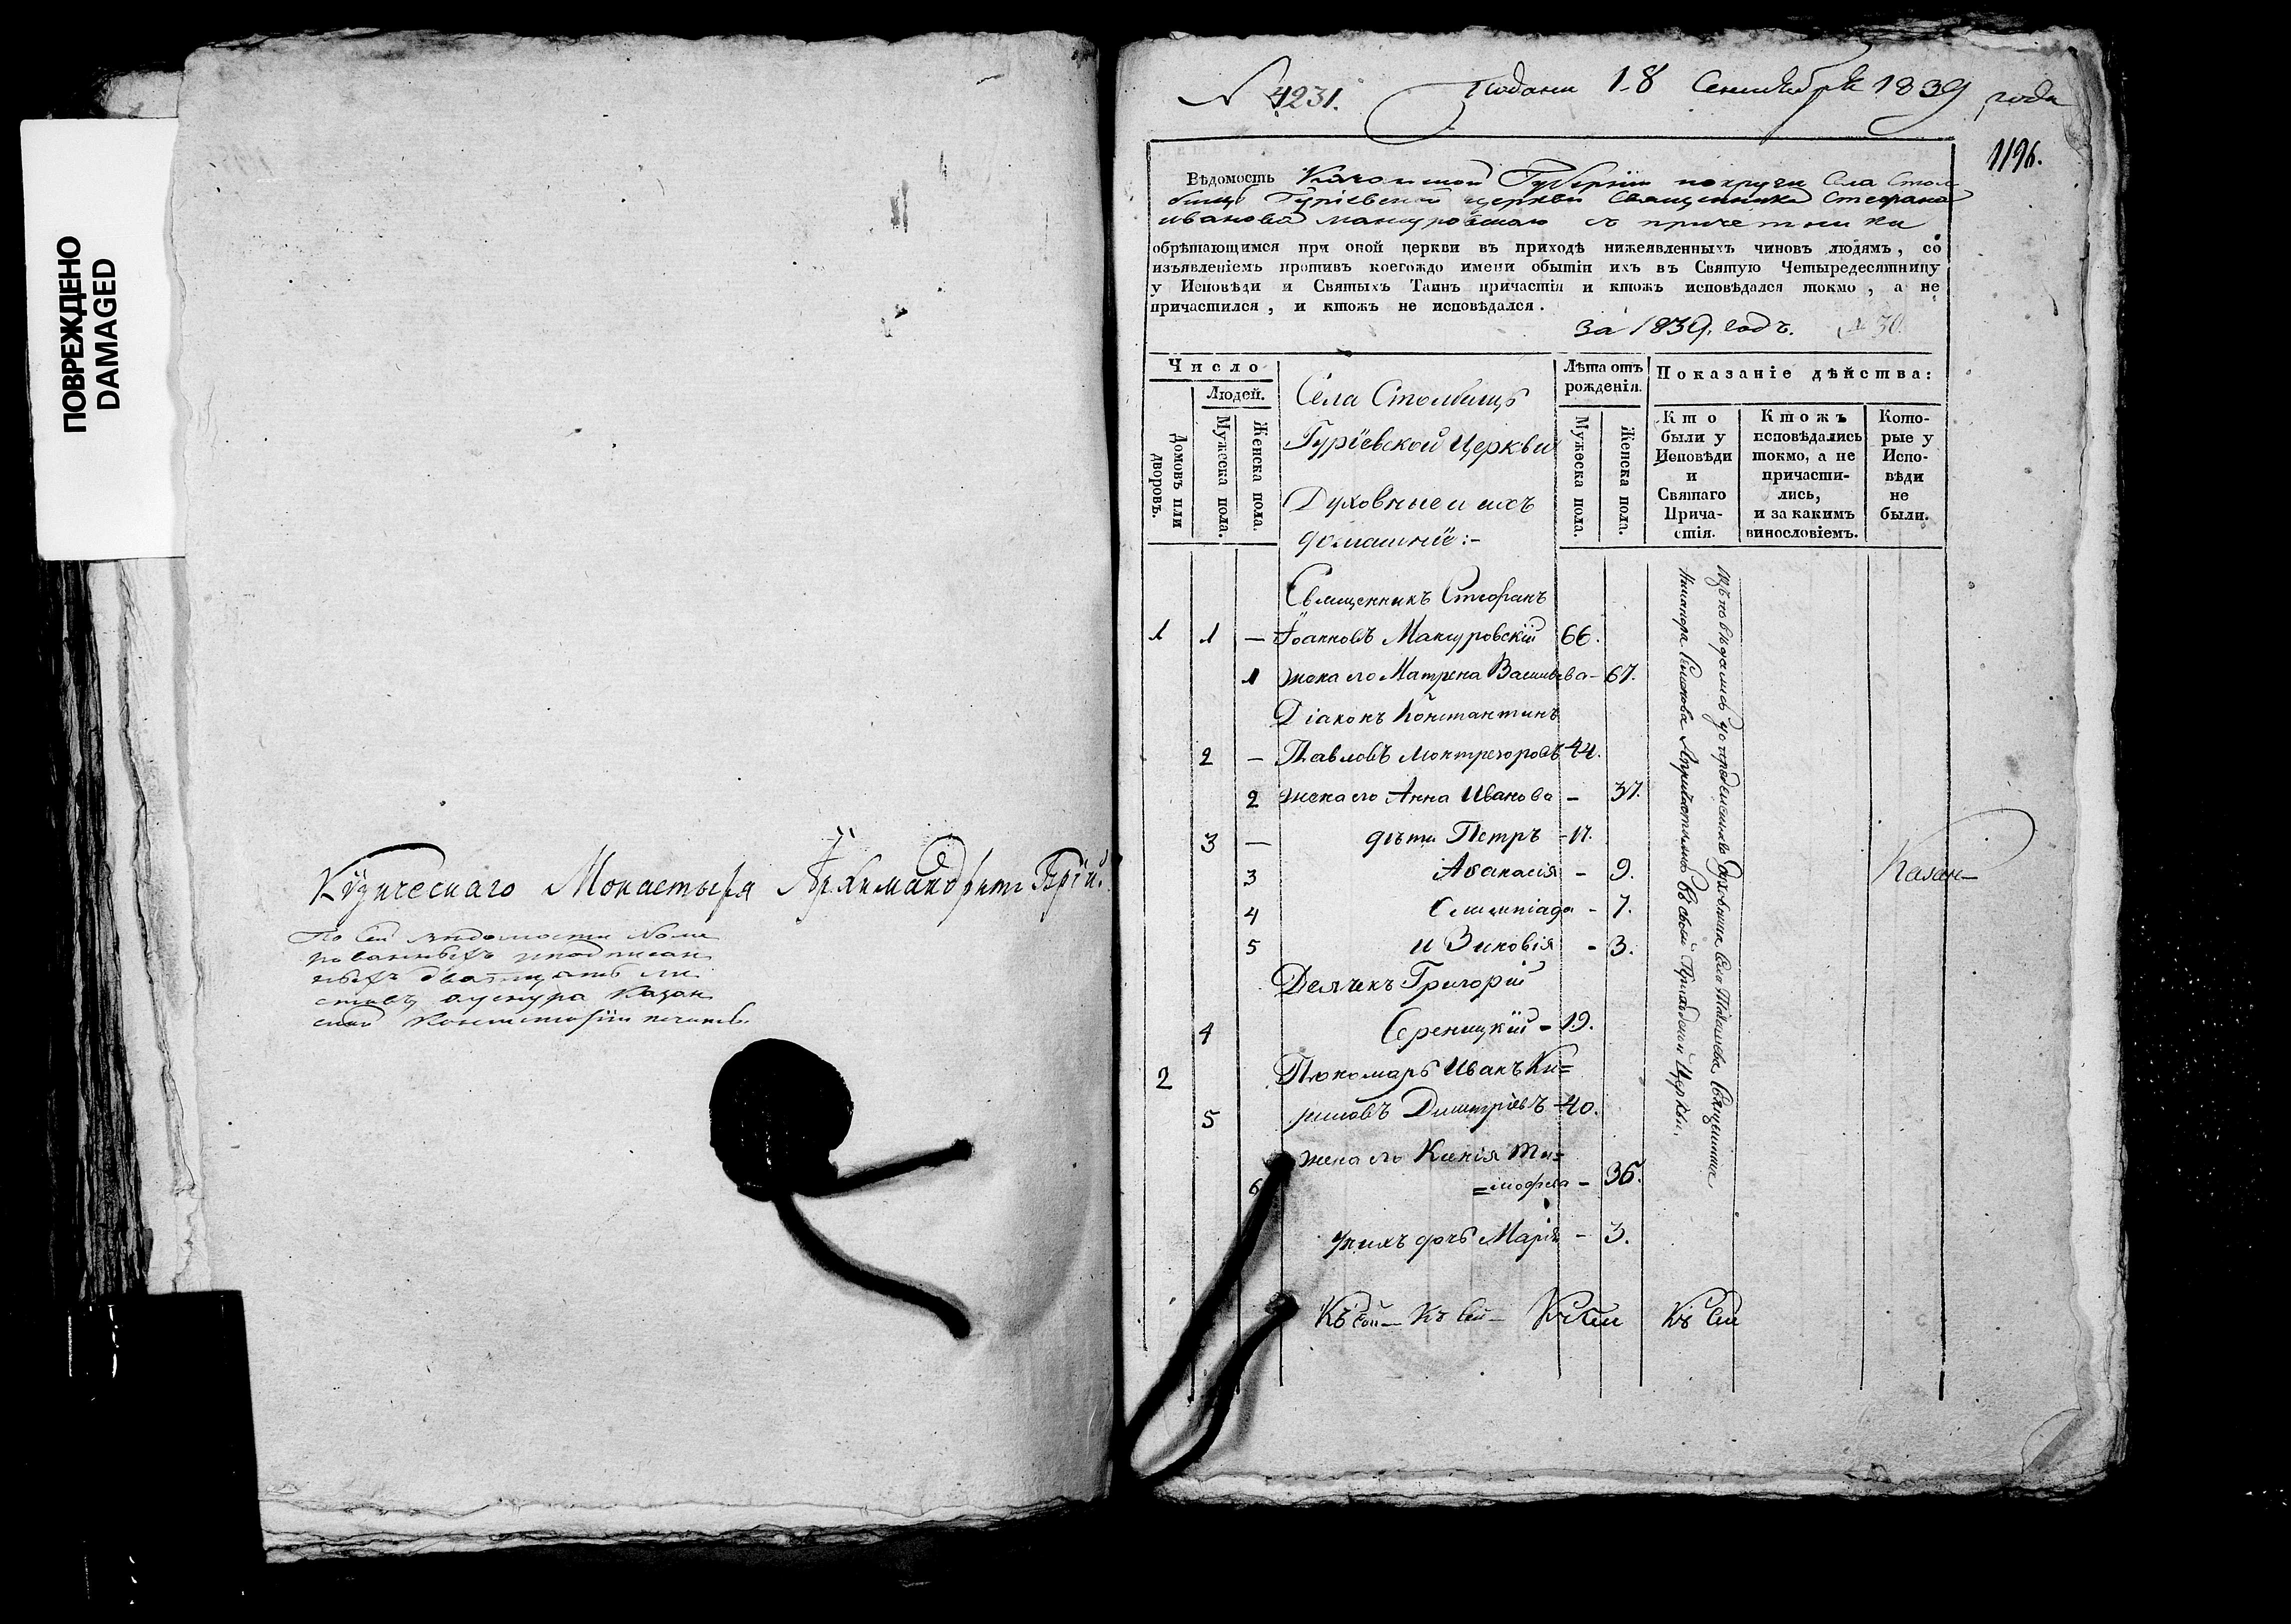 ПОВРЕЖДЕНО
DAMAGED
Кизическаго Монастыря Архимандритъ
По сей ведомости номе
рованныхъ и подписан
ныхъ двадцать ли
стовъ Казан
ской Консисторіи печать.
N 4231. Подана 18 Сентября 1839 года
1196.
Вѣдомость Казанской Губерніи округи Села Стол
бищъ Гуріевской церкви Священника Стефана
Иванова Мансуровскаго съ причетники
обрѣтающимся при оной церкви въ приходѣ нижеявленныхъ чиновъ людямъ, со
изъявленіемъ противъ коегождо имени обытіи ихъ въ Святую Четыредесятницу
у Исповѣди и Святыхъ Таинъ причастія и ктожъ исповѣдался токмо, а не
причастился, и ктожъ не исповѣдался.
за 1839. годъ. 30.
Число
Людей.
Домовъ или дворовъ.
Мужеска пола.
Женска пола.
Села Столбищъ
Гуріевской Церкви
Духовные и ихъ
домашніе:-
Лѣта отъ рожденія.
Мужеска пола.
Женска пола.
Показаніе дѣйства:
Кто были у Исповѣди и Святаго Прича-стія.
Ктожъ исповѣдались токмо, а не причасти-лись, и за какимъ винословіемъ.
Кото-рые у Испо-вѣди не были.
Священникъ Стефанъ
1 1 — Іоанновъ Мансуровскій 66.
1 жена его Матрена Васильева - 67.
Діаконъ Константинъ
2 — Павловъ Монтрезоровъ 44.
2 жена его Анна Иванова - 37.
3 — дѣти Петръ - 17.
3 Аѳанасія - 9.
4 Олимпіада - 7.
5 и Зиновія - 3.
Дьячекъ Григорій
4 Среницкій - 19.
2 Пономарь Иванъ Ки=
5 риловъ Димитріевъ 40.
жена его Ксенія Ти=
6 =мофеева - 36.
ихъ дочь Марія - 3.
Исповѣдались у Духовника Села Священника
Никанора и причастились въ своей Приходской Церкви.
Казан—
Къ сей — Къ сей — Къ сей Къ сей